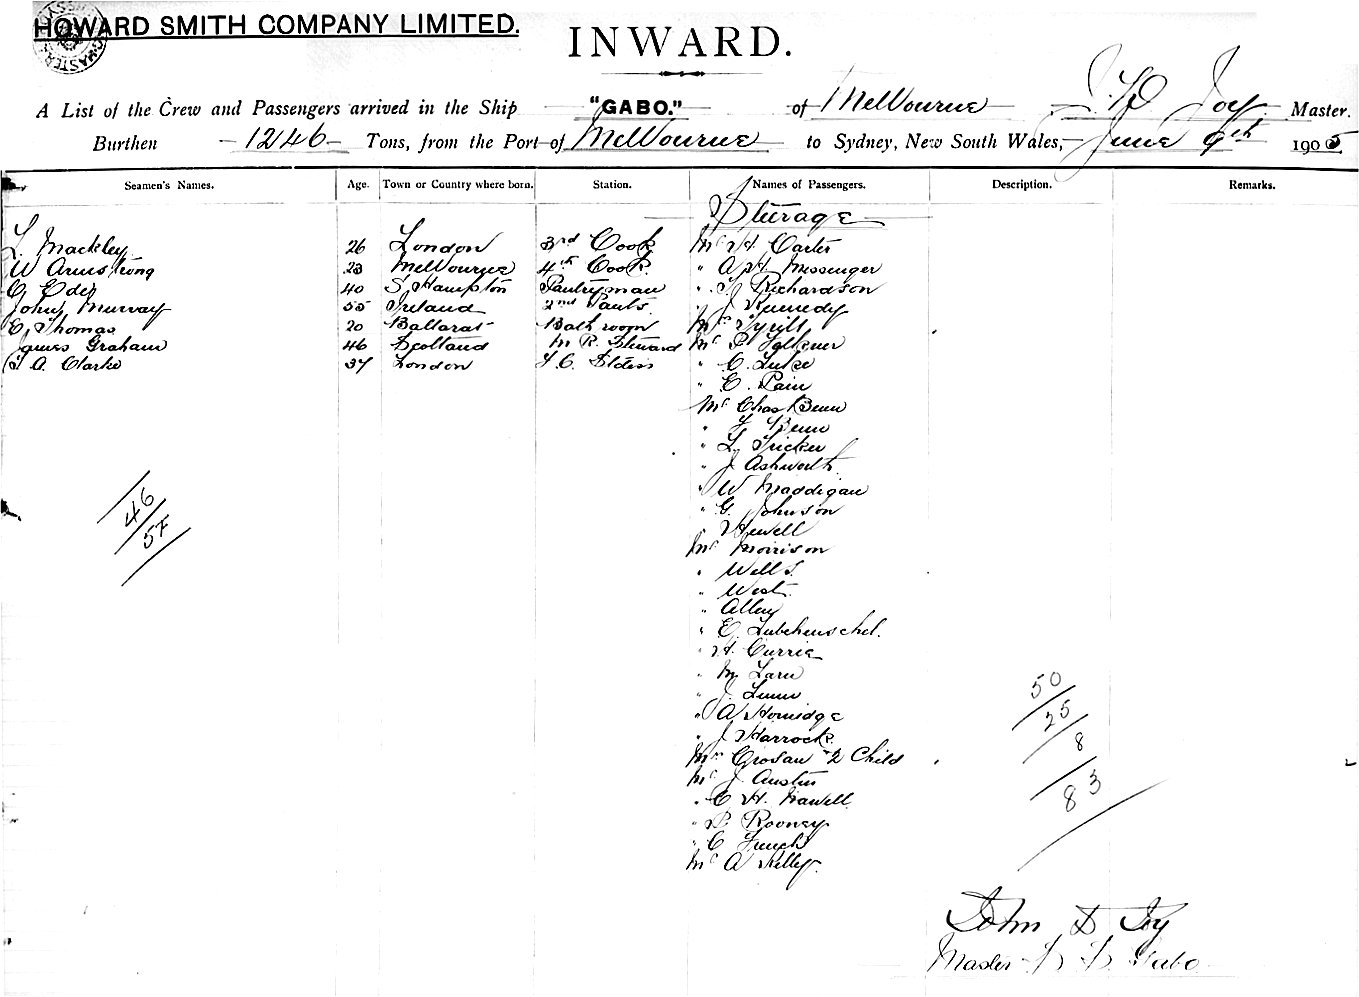 HOWARD SMITH COMPANY LIMITED.
INWARD.
A List of the Crew and Passengers arrived in the Ship "GABO." of Melbourne Joy Master.
Burthen 1246 Tons, from the Port of Melbourne to Sydney, New South Wales, June 9th 1905
Seamen's Names. Age. Town or Country where born. Station. Names of Passengers. Description. Remarks.
Steerage
L. Mackley 26 London 3rd Cook Mr H. Carter
W Armstrong 23 Melbourne 4th Cook. " A H Messenger
40 S. Hampton Pantryman " Richardson
John Murray 55 Ireland 2nd Pants. " J. Kennedy
E Thomas 20 Ballarat Bath room
James Graham 46 Scotland M R. Steward Mr P. Falkener
A. Clarke 37 London " C. Luke
" C. Pain
Mr Chas Benn
" Benn
" L. Tricker
" J. Ashworth
" W Maddigan
" G. Johnson
" Howell
Mr Morrison
" Wells
" West
" Alley
" E. Lubchenschel.
" H. Currie
" M
" J. Lunn
" A Horridge
" J. Harrocks
Mrs Crosan 2 Child
Mr J. Austin
" C H.
" P. Rooney
" C French
Mr A Kelly.
46
57
50
25
8
83
John D Joy
Master Gabo